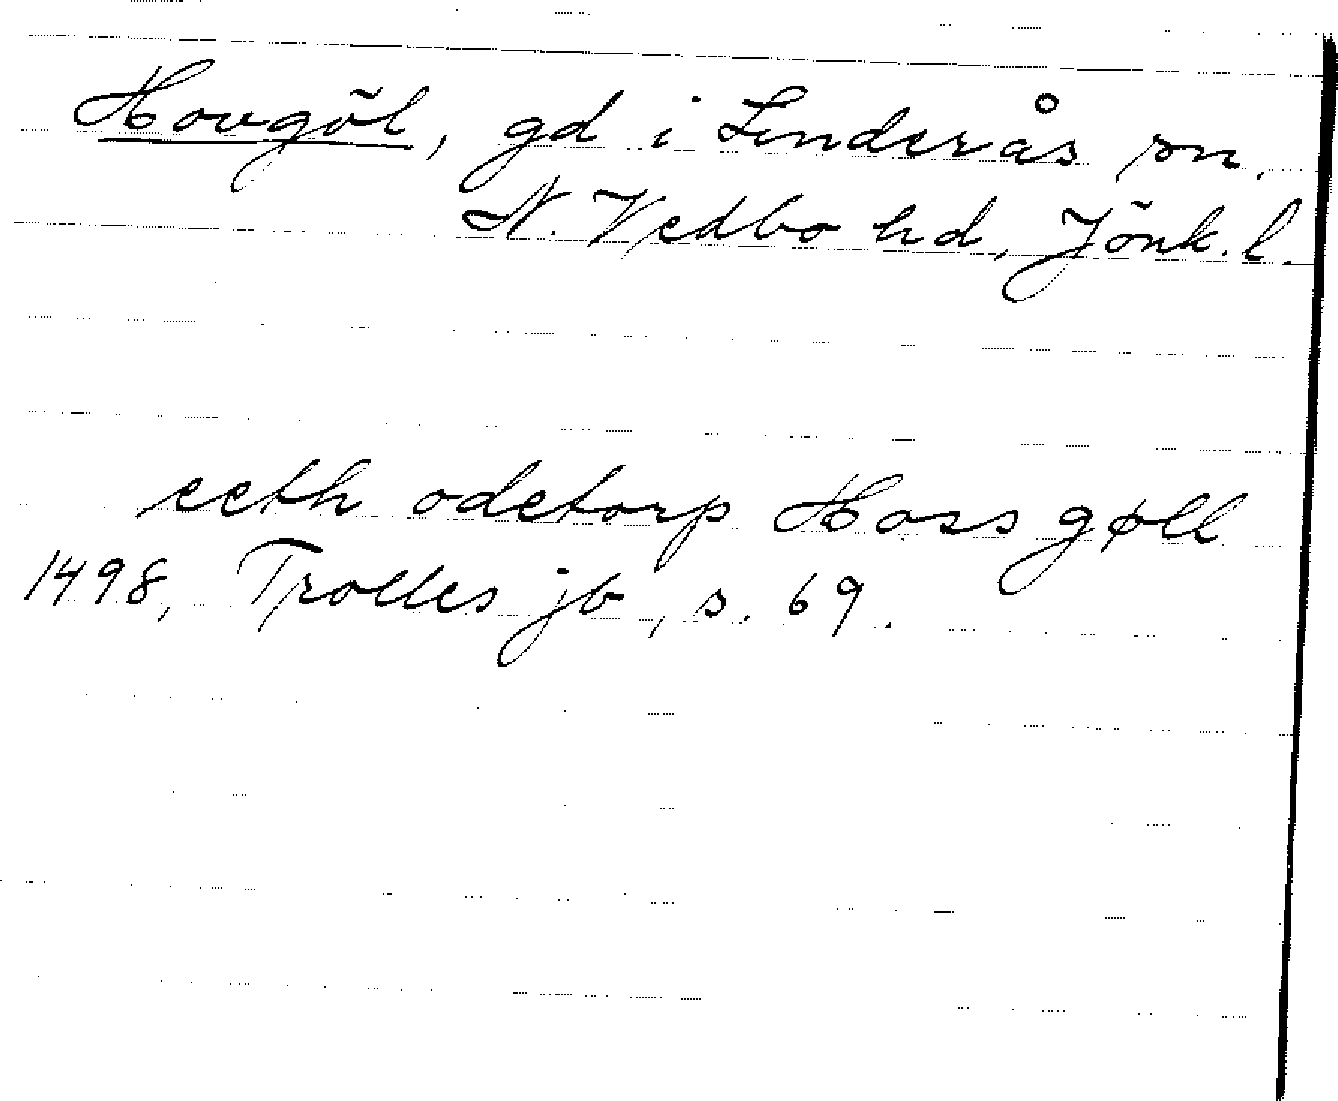 Hovgöl, gd i Linderås sn.
N. Vedbo hd, Jönk. l.
eeth ödetorp Hoss gøll
1498, Trolles jb, s. 69.